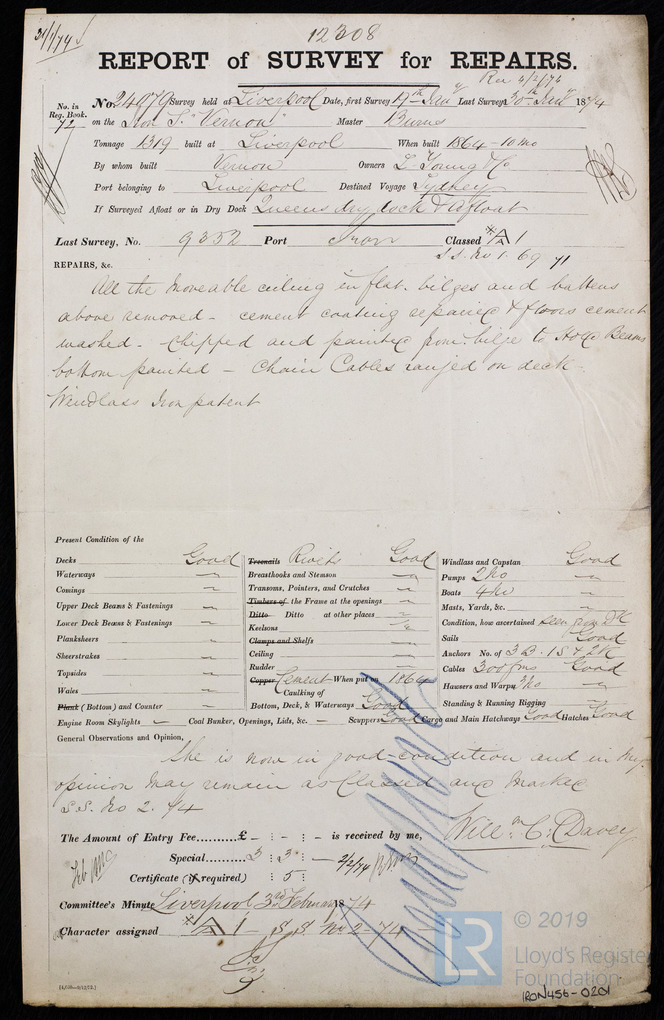 31/1/74
12308
REPORT of SURVEY for REPAIRS.
Rec 4/2/74
No. in Reg. Book. 72
No. 24079 Survey held at Liverpool Date, first Survey 19th Jany Last Survey 30th Jany 1874
on the Iron S. "Vernon" Master Burns
Tonnage 1319 built at Liverpool When built 1864 - 10 mo
By whom built Vernon Owners L. Young & Co
Port belonging to Liverpool Destined Voyage Sydney
If Surveyed Afloat or in Dry Dock Queens dry dock & Afloat
Last Survey, No. 9352 Port Iron Classed *A1
S.S. No 1. 69 71
REPAIRS, &c.
All the moveable ceiling in flat, bilges and battens
above removed - cement coating repaired & floors cement
washed. Chipped and painted from bilge to Hold Beams
bottom painted - Chain Cables ranged on deck
Windlass Iron patent
Present Condition of the
Decks Good
Waterways "
Comings "
Upper Deck Beams & Fastenings "
Lower Deck Beams & Fastenings "
Planksheers "
Sheerstrakes "
Topsides "
Wales "
Plank (Bottom) and Counter "
Treenails Rivets Good
Breasthooks and Stemson "
Transoms, Pointers, and Crutches "
Timbers of the Frame at the openings "
Ditto Ditto at other places "
Keelsons "
Clamps and Shelfs
Ceiling "
Rudder "
Copper Cement When put on 1864
Caulking of
Bottom, Deck, & Waterways Good
Windlass and Capstan Good
Pumps 2 No "
Boats 4 No "
Masts, Yards, &c. "
Condition, how ascertained seen from DK
Sails Good
Anchors No. of 3 B. 1 S & 2 K
Cables 300 fms Good
Hawsers and Warps 3 No "
Standing & Running Rigging "
Engine Room Skylights — Coal Bunker, Openings, Lids, &c. — Scuppers Good Cargo and Main Hatchways Good Hatches Good
General Observations and Opinion,
She is now in good condition and in my
opinion may remain as Classed and marked
S.S. No 2. 74
Willm. C. Davey
The Amount of Entry Fee..........£ - : - : - is received by me,
Special.......... 3 : 3 : - 2/2/74
Certificate (if required) : 5 :
Committee's Minute Liverpool 3rd February 1874
Character assigned *A1 S S No 2-74
© 2019
LR
Lloyd's Register
Foundation
IRON456-0201